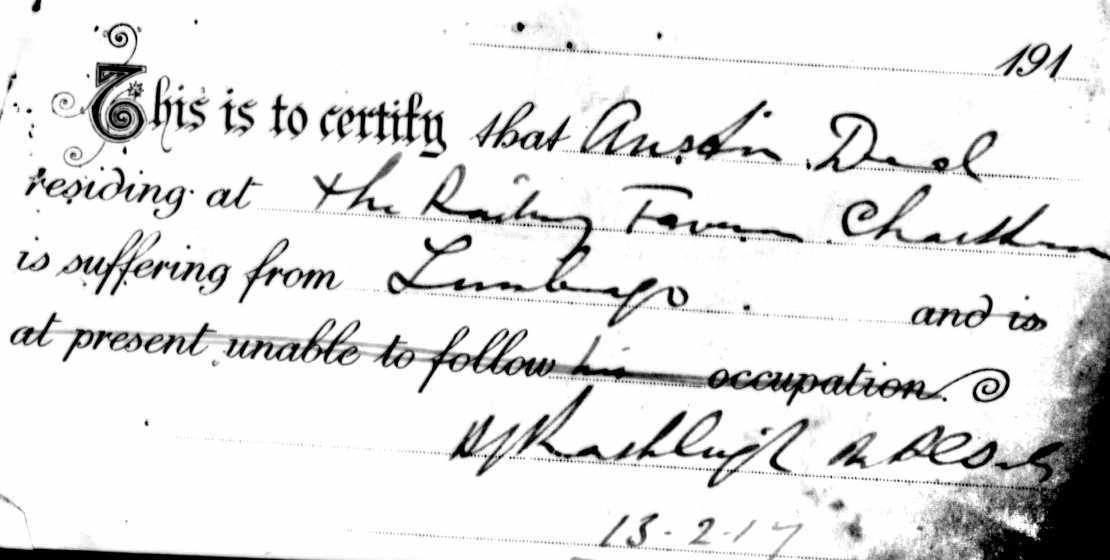 191
This is to certify that Austin Deal
residing at the Railway Tavern Chartham
is suffering from Lumbago. and is
at present unable to follow his occupation.
Rashleigh
13-2-17